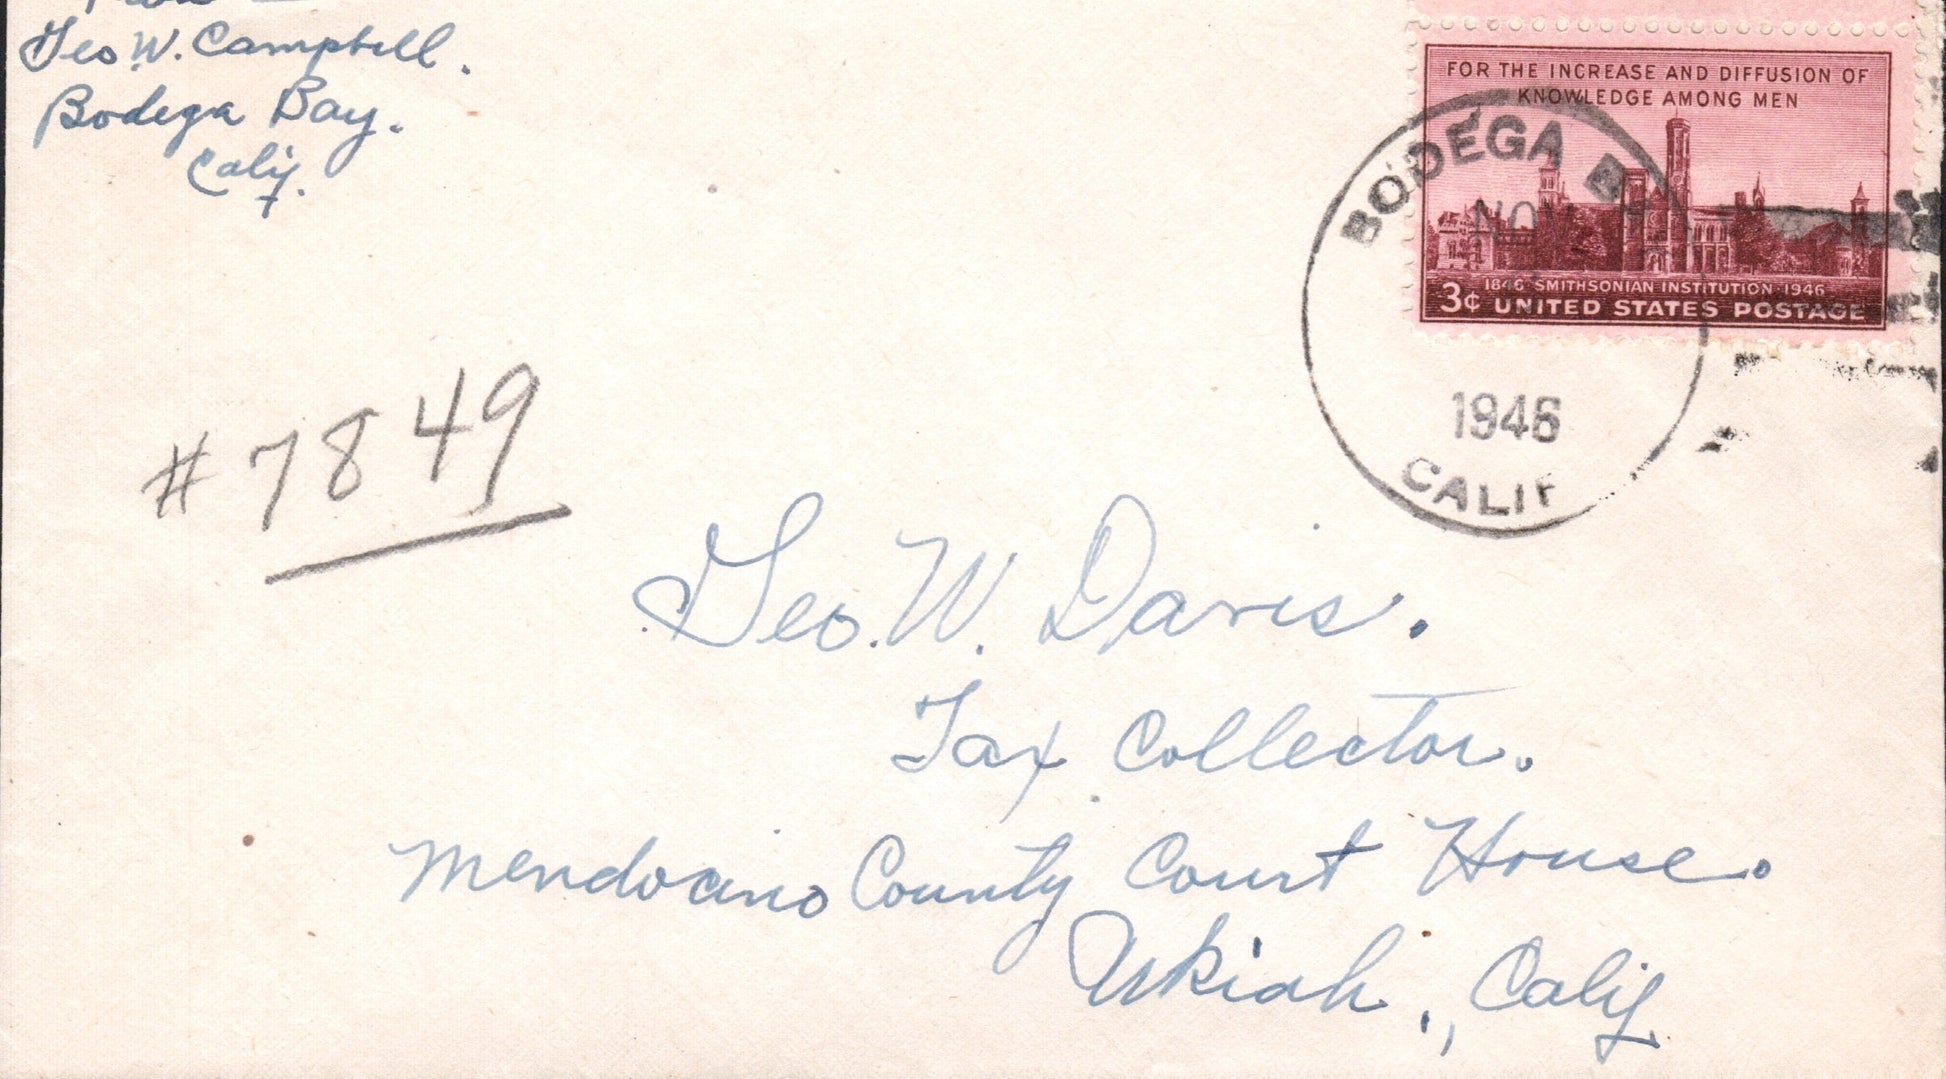 Geo. W. Campbell.
Bodega Bay.
Calif.
FOR THE INCREASE AND DIFFUSION OF
KNOWLEDGE AMONG MEN
1846 SMITHSONIAN INSTITUTION 1946
3¢ UNITED STATES POSTAGE
BODEGA B
NOV
1946
CALIF
# 7849
Geo. W. Davis.
Tax Collector.
Mendocino County Court House.
Ukiah, Calif.